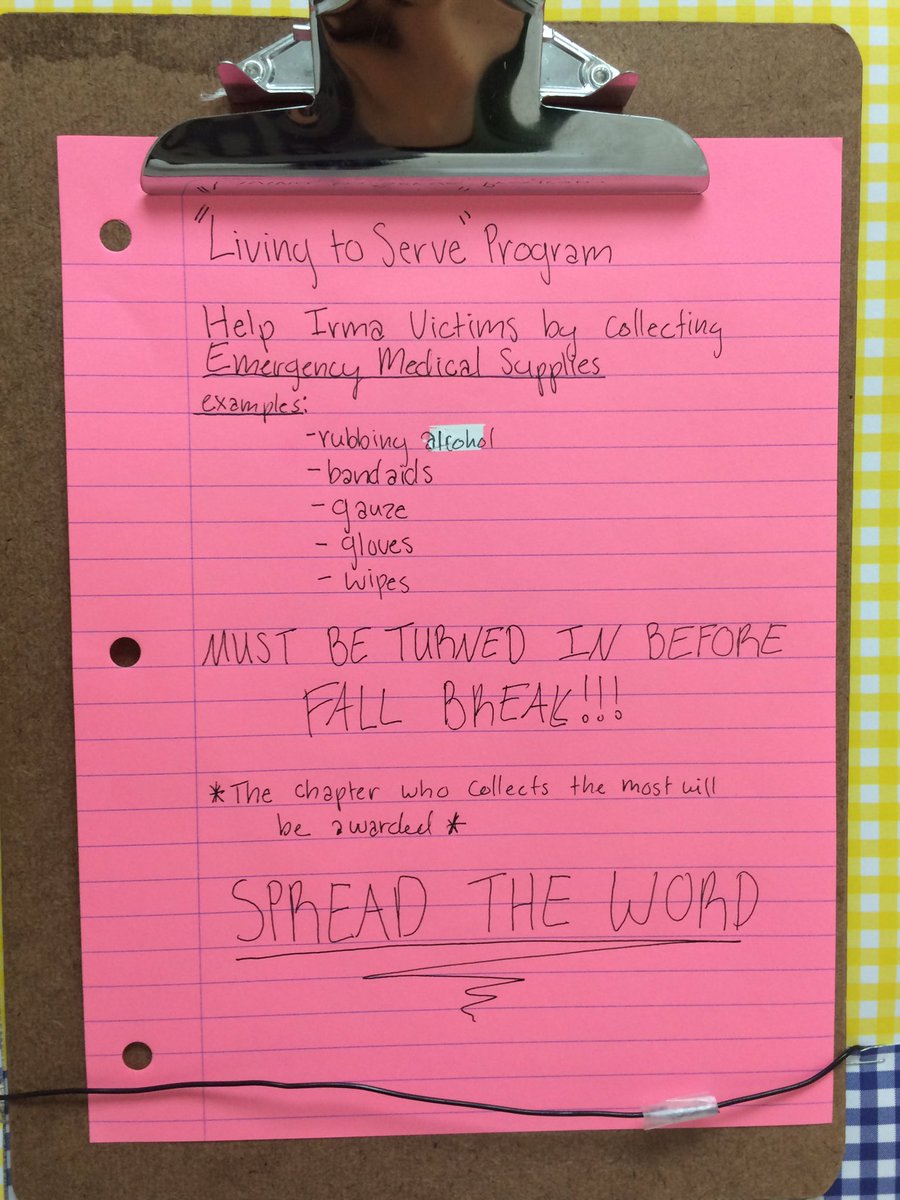 "Living to Serve" Program
Help Irma Victims by collecting
Emergency Medical Supplies
examples:
-rubbing alcohol
-bandaids
-gauze
- gloves
- wipes
MUST BE TURNED IN BEFORE
FALL BREAK!!!
*The chapter who collects the most will
be awarded*
SPREAD THE WORD